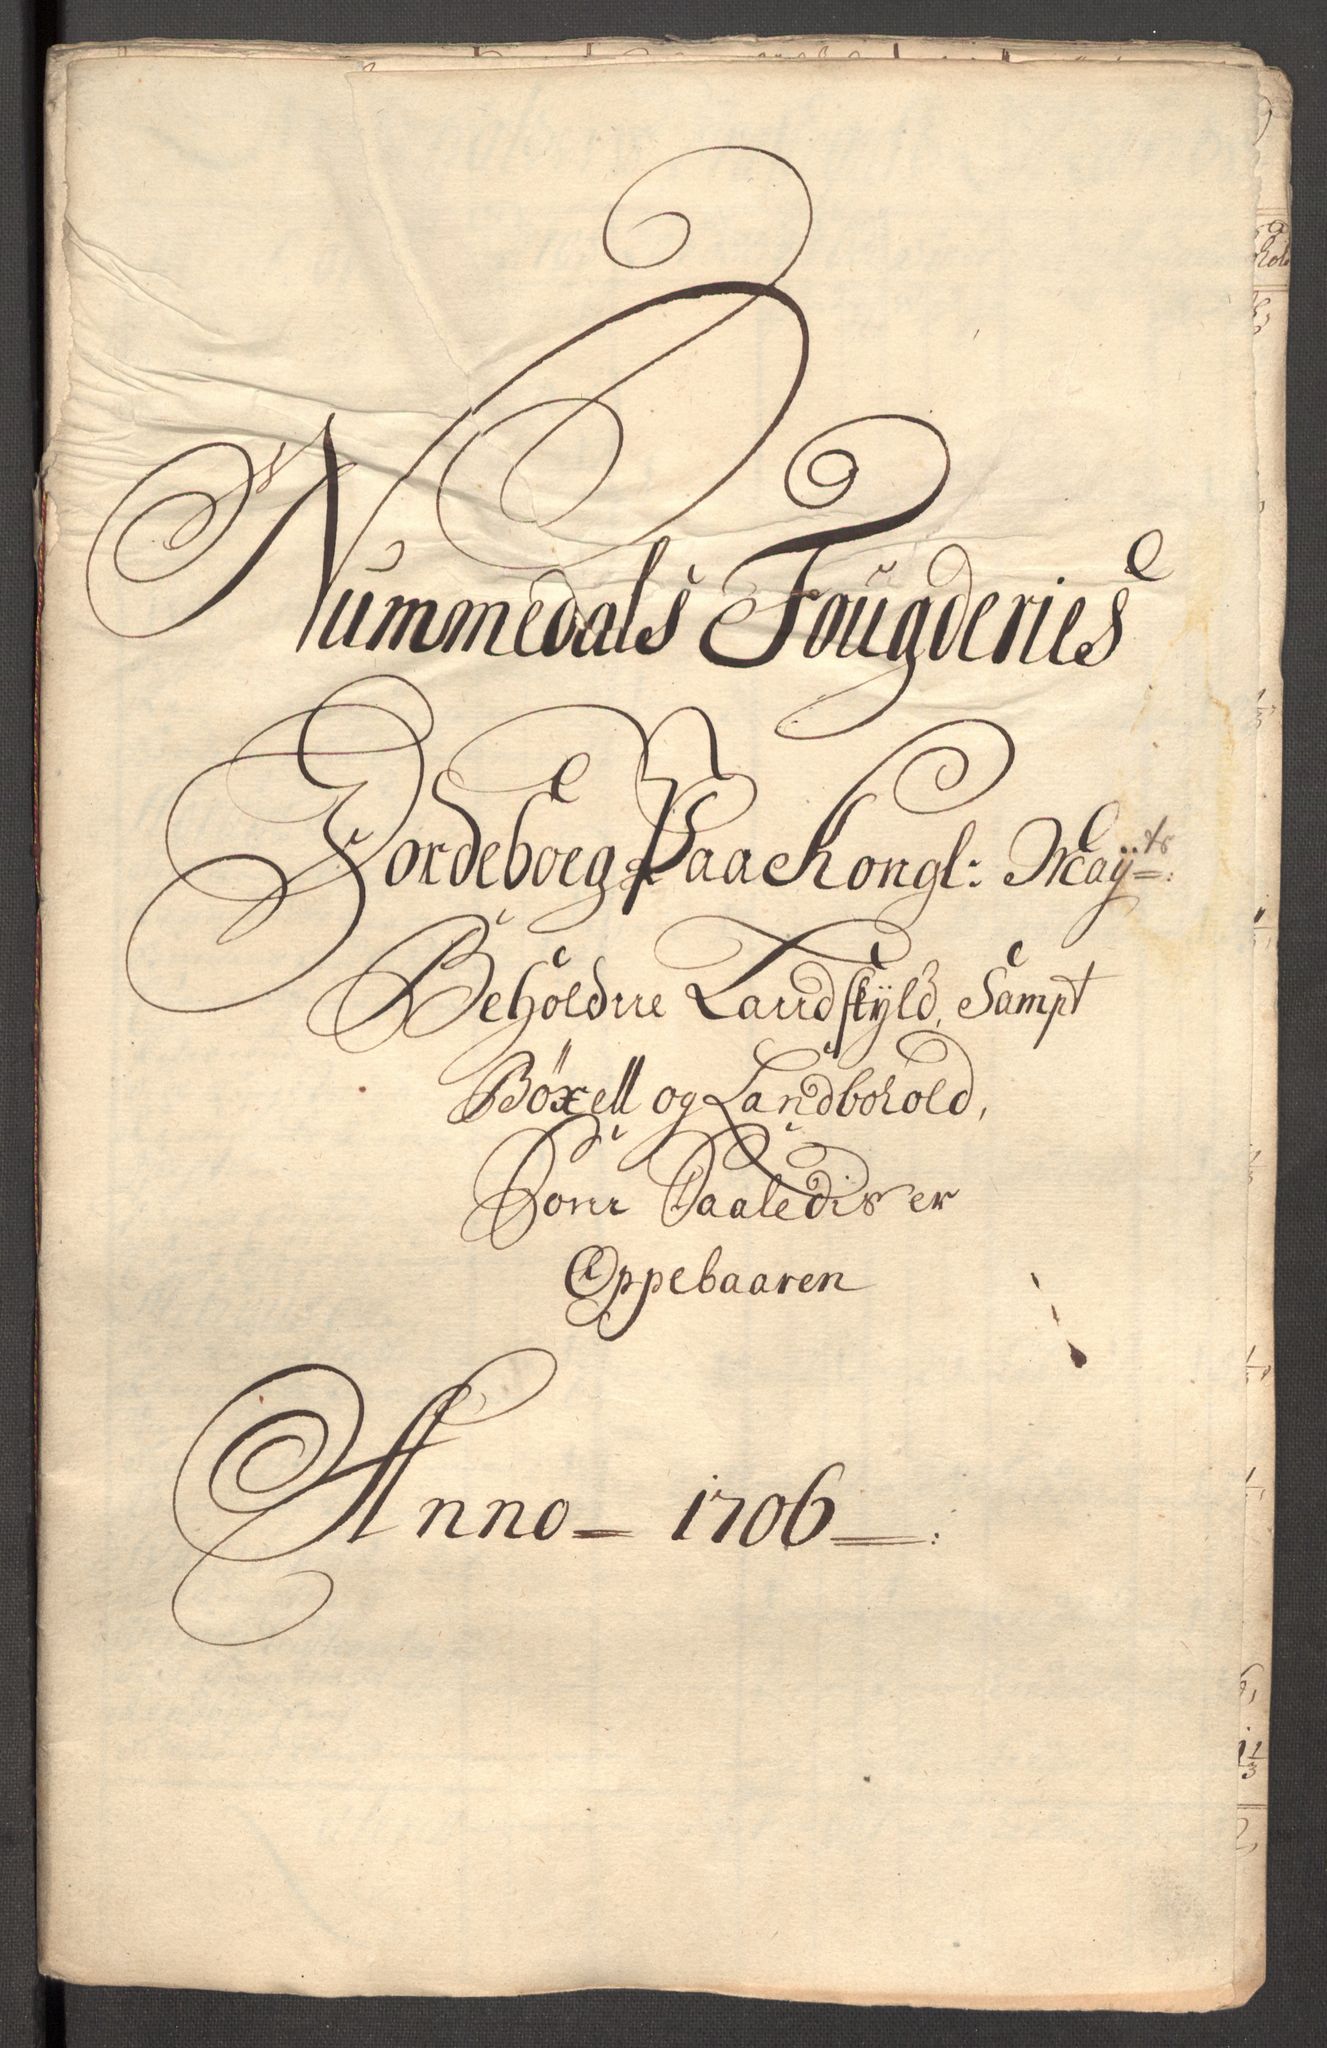 Nummedals Fougderies
Jordeboeg Paa Kongl: Maÿts:
Beholdne Landskyld, Sampt
Bøxell og Landbohold,
Som Saaledis er
Oppebaaren
Anno 1706